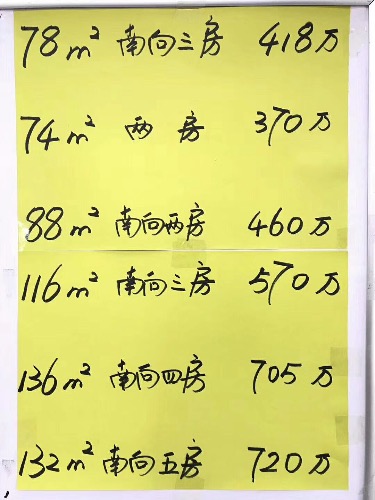 78m² 南向三房 418万
74m² 两房 370万
88m² 南向两房 460万
116m² 南向三房 570万
136m² 南向四房 705万
132m² 南向五房 720万